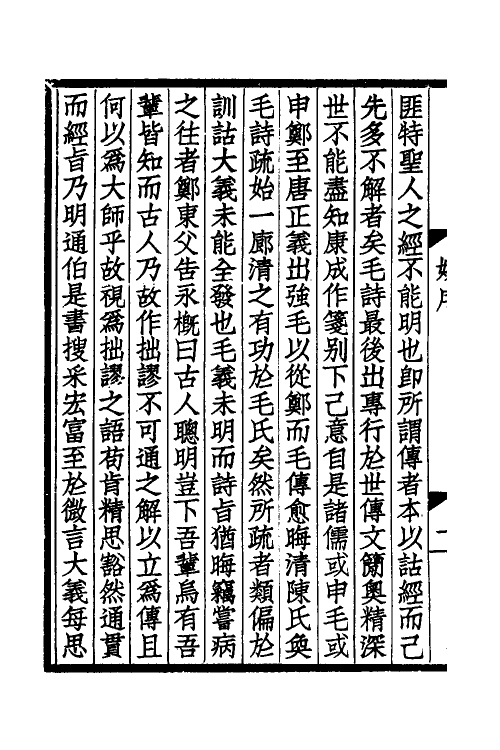 匪特聖人之經不能明也卽所謂傳者本以詁經而己
先多不解者矣毛詩最後出專行於世傳文簡奧精深
世不能盡知康成作箋别下己意自是諸儒或申毛或
申鄭至唐正義出強毛以從鄭而毛傳愈晦清陳氏奐
毛詩疏始一廓清之有功於毛氏矣然所疏者類偏於
訓詁大義未能全發也毛義未明而詩㫖猶晦竊嘗病
之往者鄭東父告永概曰古人聰明豈下吾輩烏有吾
輩皆知而古人乃故作拙謬不可通之解以立爲傳且
何以爲大師乎故視爲拙謬之語茍肯精思豁然通貫
而經㫖乃明通伯是書搜采宏富至於微言大義每思
二